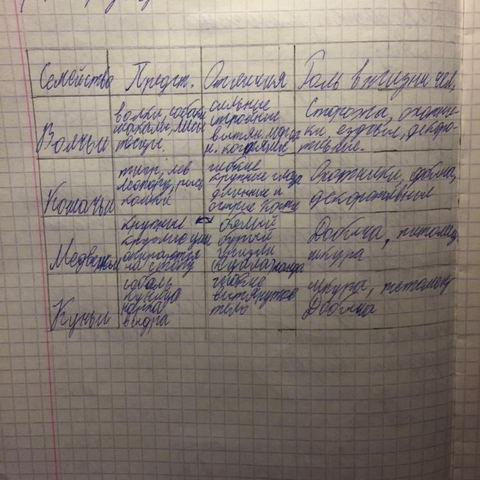 Семейство Предст. Отличия Роль в жизни чел.
Волчьи
волки, собаки
шакалы, лисы
песцы
сильные
стройные
вытян. морда
н. когрями
Сторожа, охотни-
ки, ездовые, декора-
тивные.
Кошачьи
тигр, лев
леопард, рысь
кошки
гибкие
крупные глаза
длинные и
острые когти
Охотники, добыча,
декоративные
Медвежьи
крупные
крупные уши
опираются
на стопу
белый
бурый
гризли
панда
Добыча, питомец
шкура
Куньи
соболь
куница
норка
выдра
гибкие
вытянутое
тело
шкура, питомец
Добыча